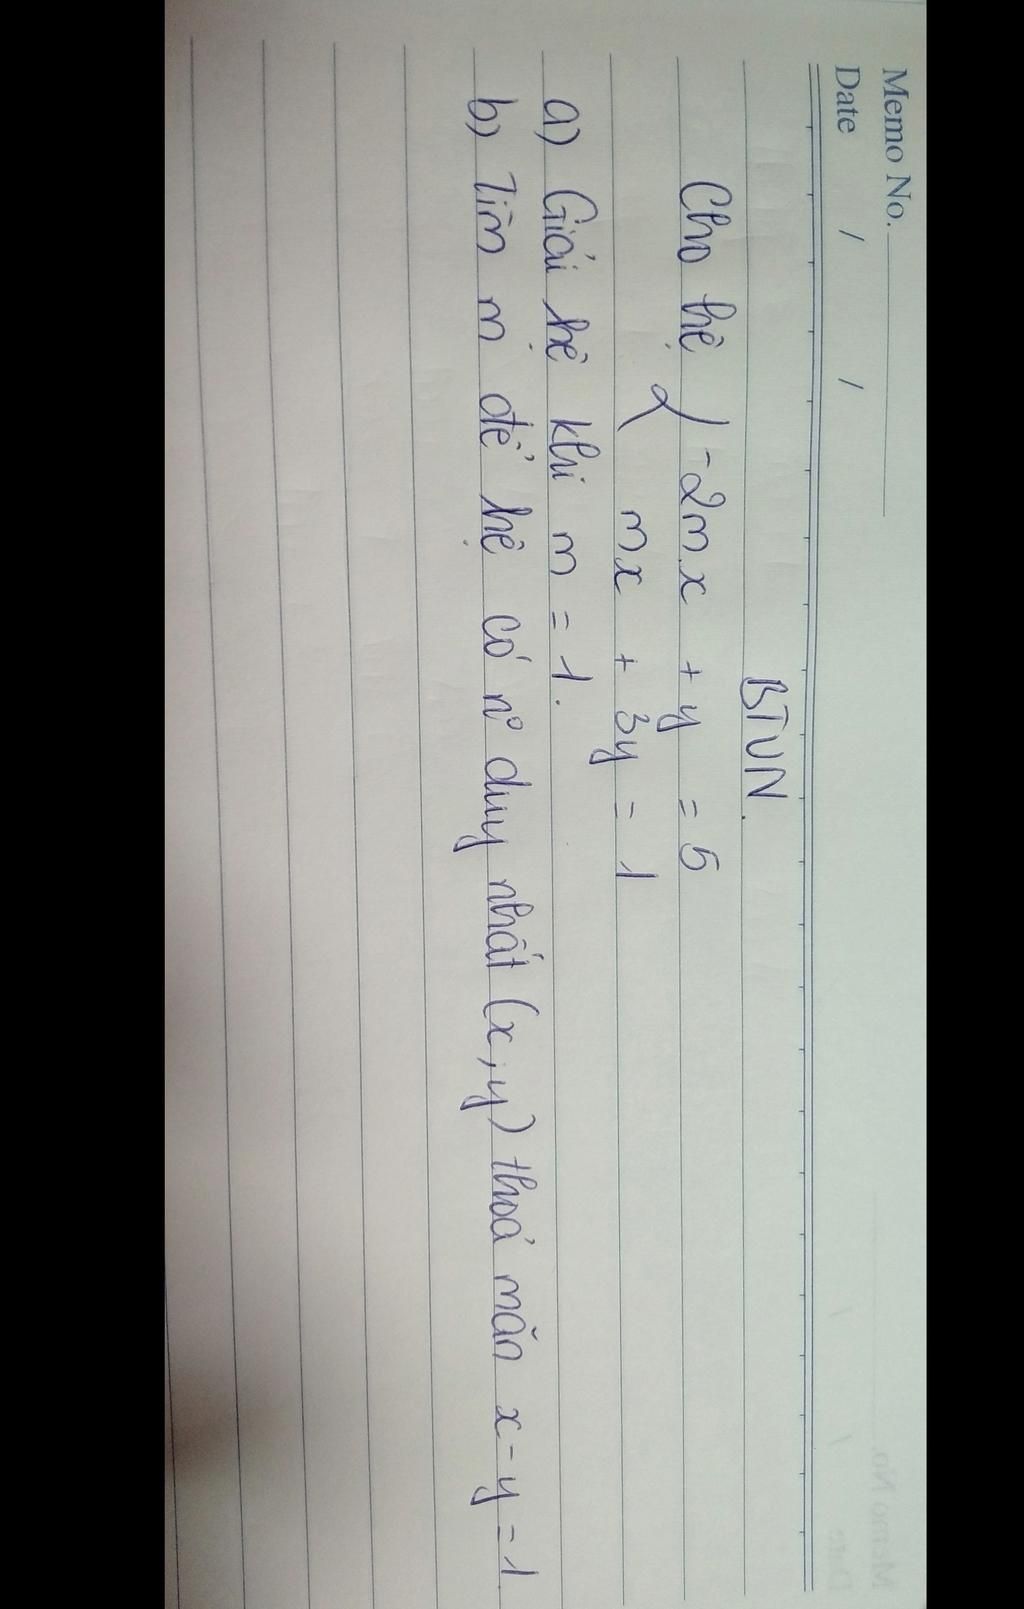 Memo No.
Date / /
BTVN.
Cho hệ { -2mx + y = 5
mx + 3y = 1
a) Giải hệ khi m = 1.
b) Tìm m để hệ có n° duy nhất (x; y) thoả mãn x - y = 1